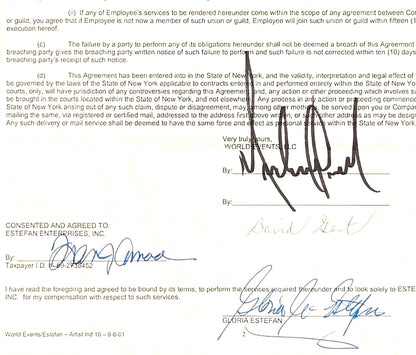 (ii) If any of Employee's services to be rendered hereunder come within the scope of any agreement between Com
or guild, you agree that if Employee is not now a member of such union or guild, Employee will join such union or guild within fifteen (1
execution hereof.
(c) The failure by a party to perform any of its obligations hereunder shall not be deemed a breach of this Agreement
breaching party gives the breaching party written notice of such failure to perform and such failure is not corrected within ten (10) days
breaching party's receipt of such notice.
(d) This Agreement has been entered into in the State of New York, and the validity, interpretation and legal effect of
be governed by the laws of the State of New York applicable to contracts entered into and performed entirely within the State of New Yor
courts, only, will have jurisdiction of any controversies regarding this Agreement; and, any action or other proceeding which involves su
be brought in the courts located within the State of New York, and not elsewhere. Any process in any action or proceeding commence
State of New York arising out of any such claim, dispute or disagreement, may, among other methods, be served upon you or Compa
mailing the same, via registered or certified mail, addressed to the address first above written, or such other address as may be design
Any such delivery or mail service shall be deemed to have the same force and effect as personal service within the State of New York
Very truly yours,
WORLD EVENTS, LLC
By:
By:
David Gest
CONSENTED AND AGREED TO:
ESTEFAN ENTERPRISES, INC.
By:
Taxpayer I.D. #
I have read the foregoing and agree to be bound by its terms, to perform the services required thereunder and to look solely to ESTE
INC. for my compensation with respect to such services.
GLORIA ESTEFAN
World Events/Estefan – Artist Ind 10 – 9-6-01
2